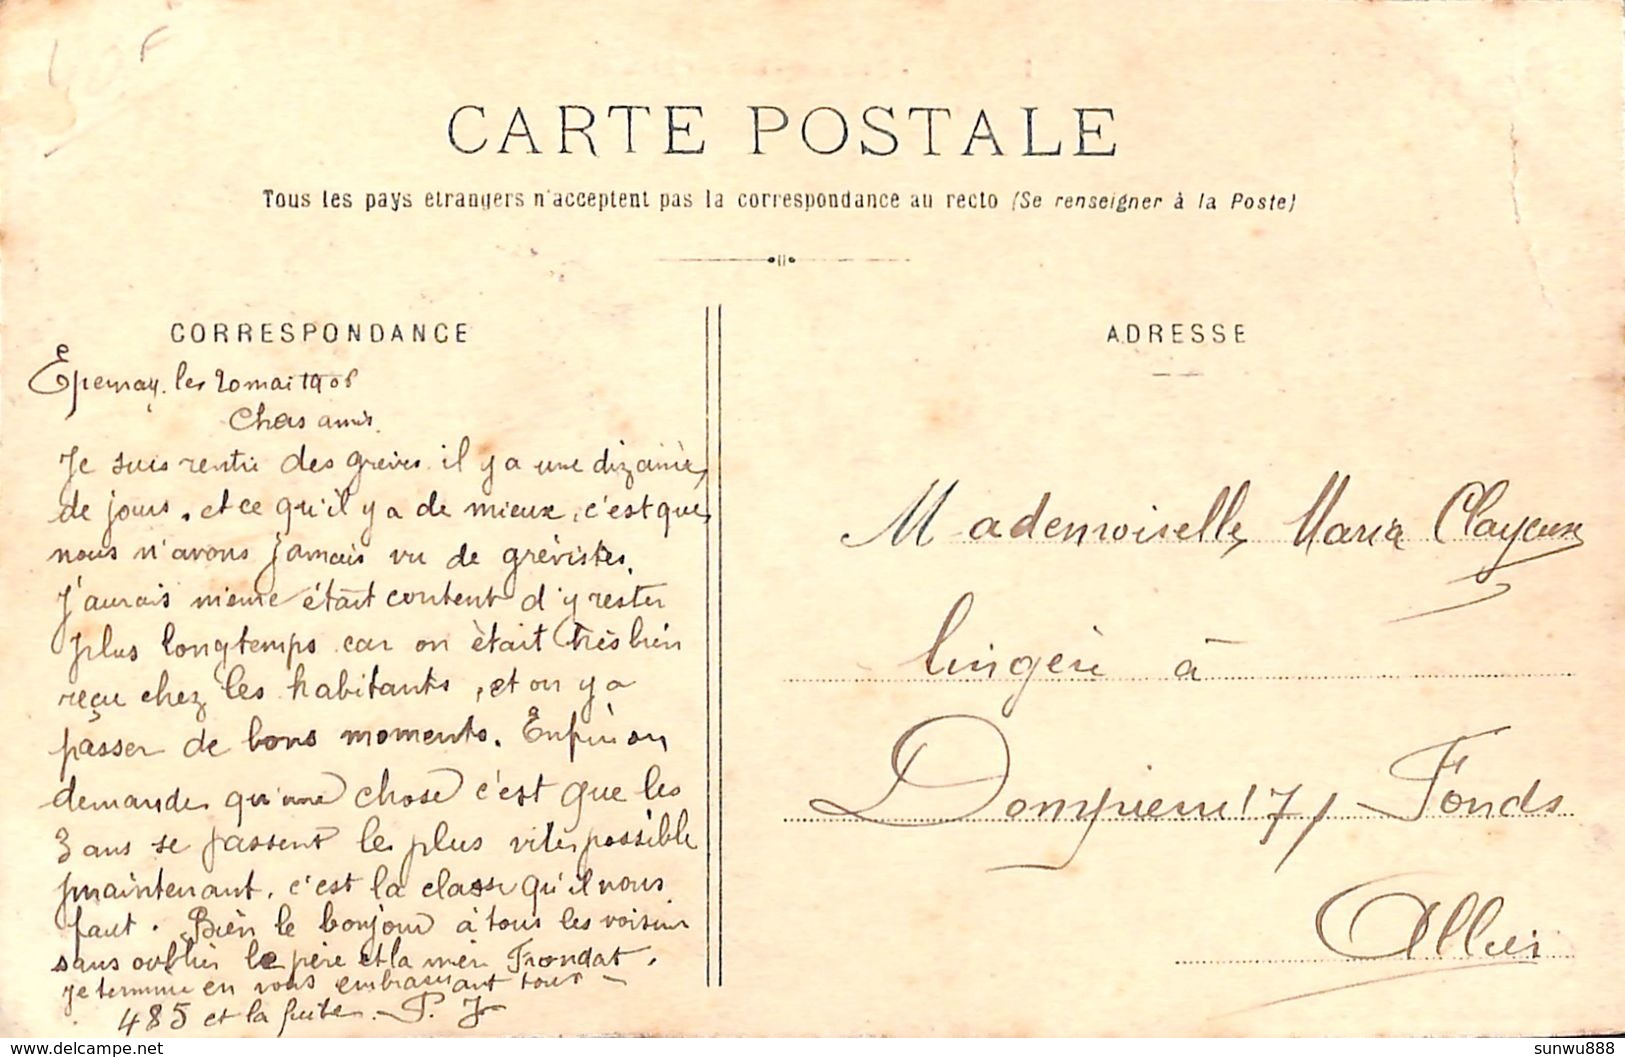 CARTE POSTALE
Tous les pays etrangers n'acceptent pas la correspondance au recto (Se renseigner à la Poste)
CORRESPONDANCE
Epernay, les 20 mai 1906
Chers amis.
Je suis rentré des grèves il y a une dizaine
de jours, et ce qu'il y a de mieux, c'est que
nous n'avons jamais vu de grévistes.
J'aurais même était content d'y rester
plus longtemps car on était très bien
reçu chez les habitants, et on y a
passer de bons moments. Enfin on
demande qu'une chose c'est que les
3 ans se passent le plus vite possible
maintenant, c'est la classe qu'il nous
faut. Bien le bonjour à tous les voisins
sans oublier le père et la mère Frondat.
je termine en vous embrassant tous
485 et la fuite. P. J
ADRESSE
Mademoiselle Maria Clayeux
lingère à
Dompierre
Allier
sunwu888
delcampe.net